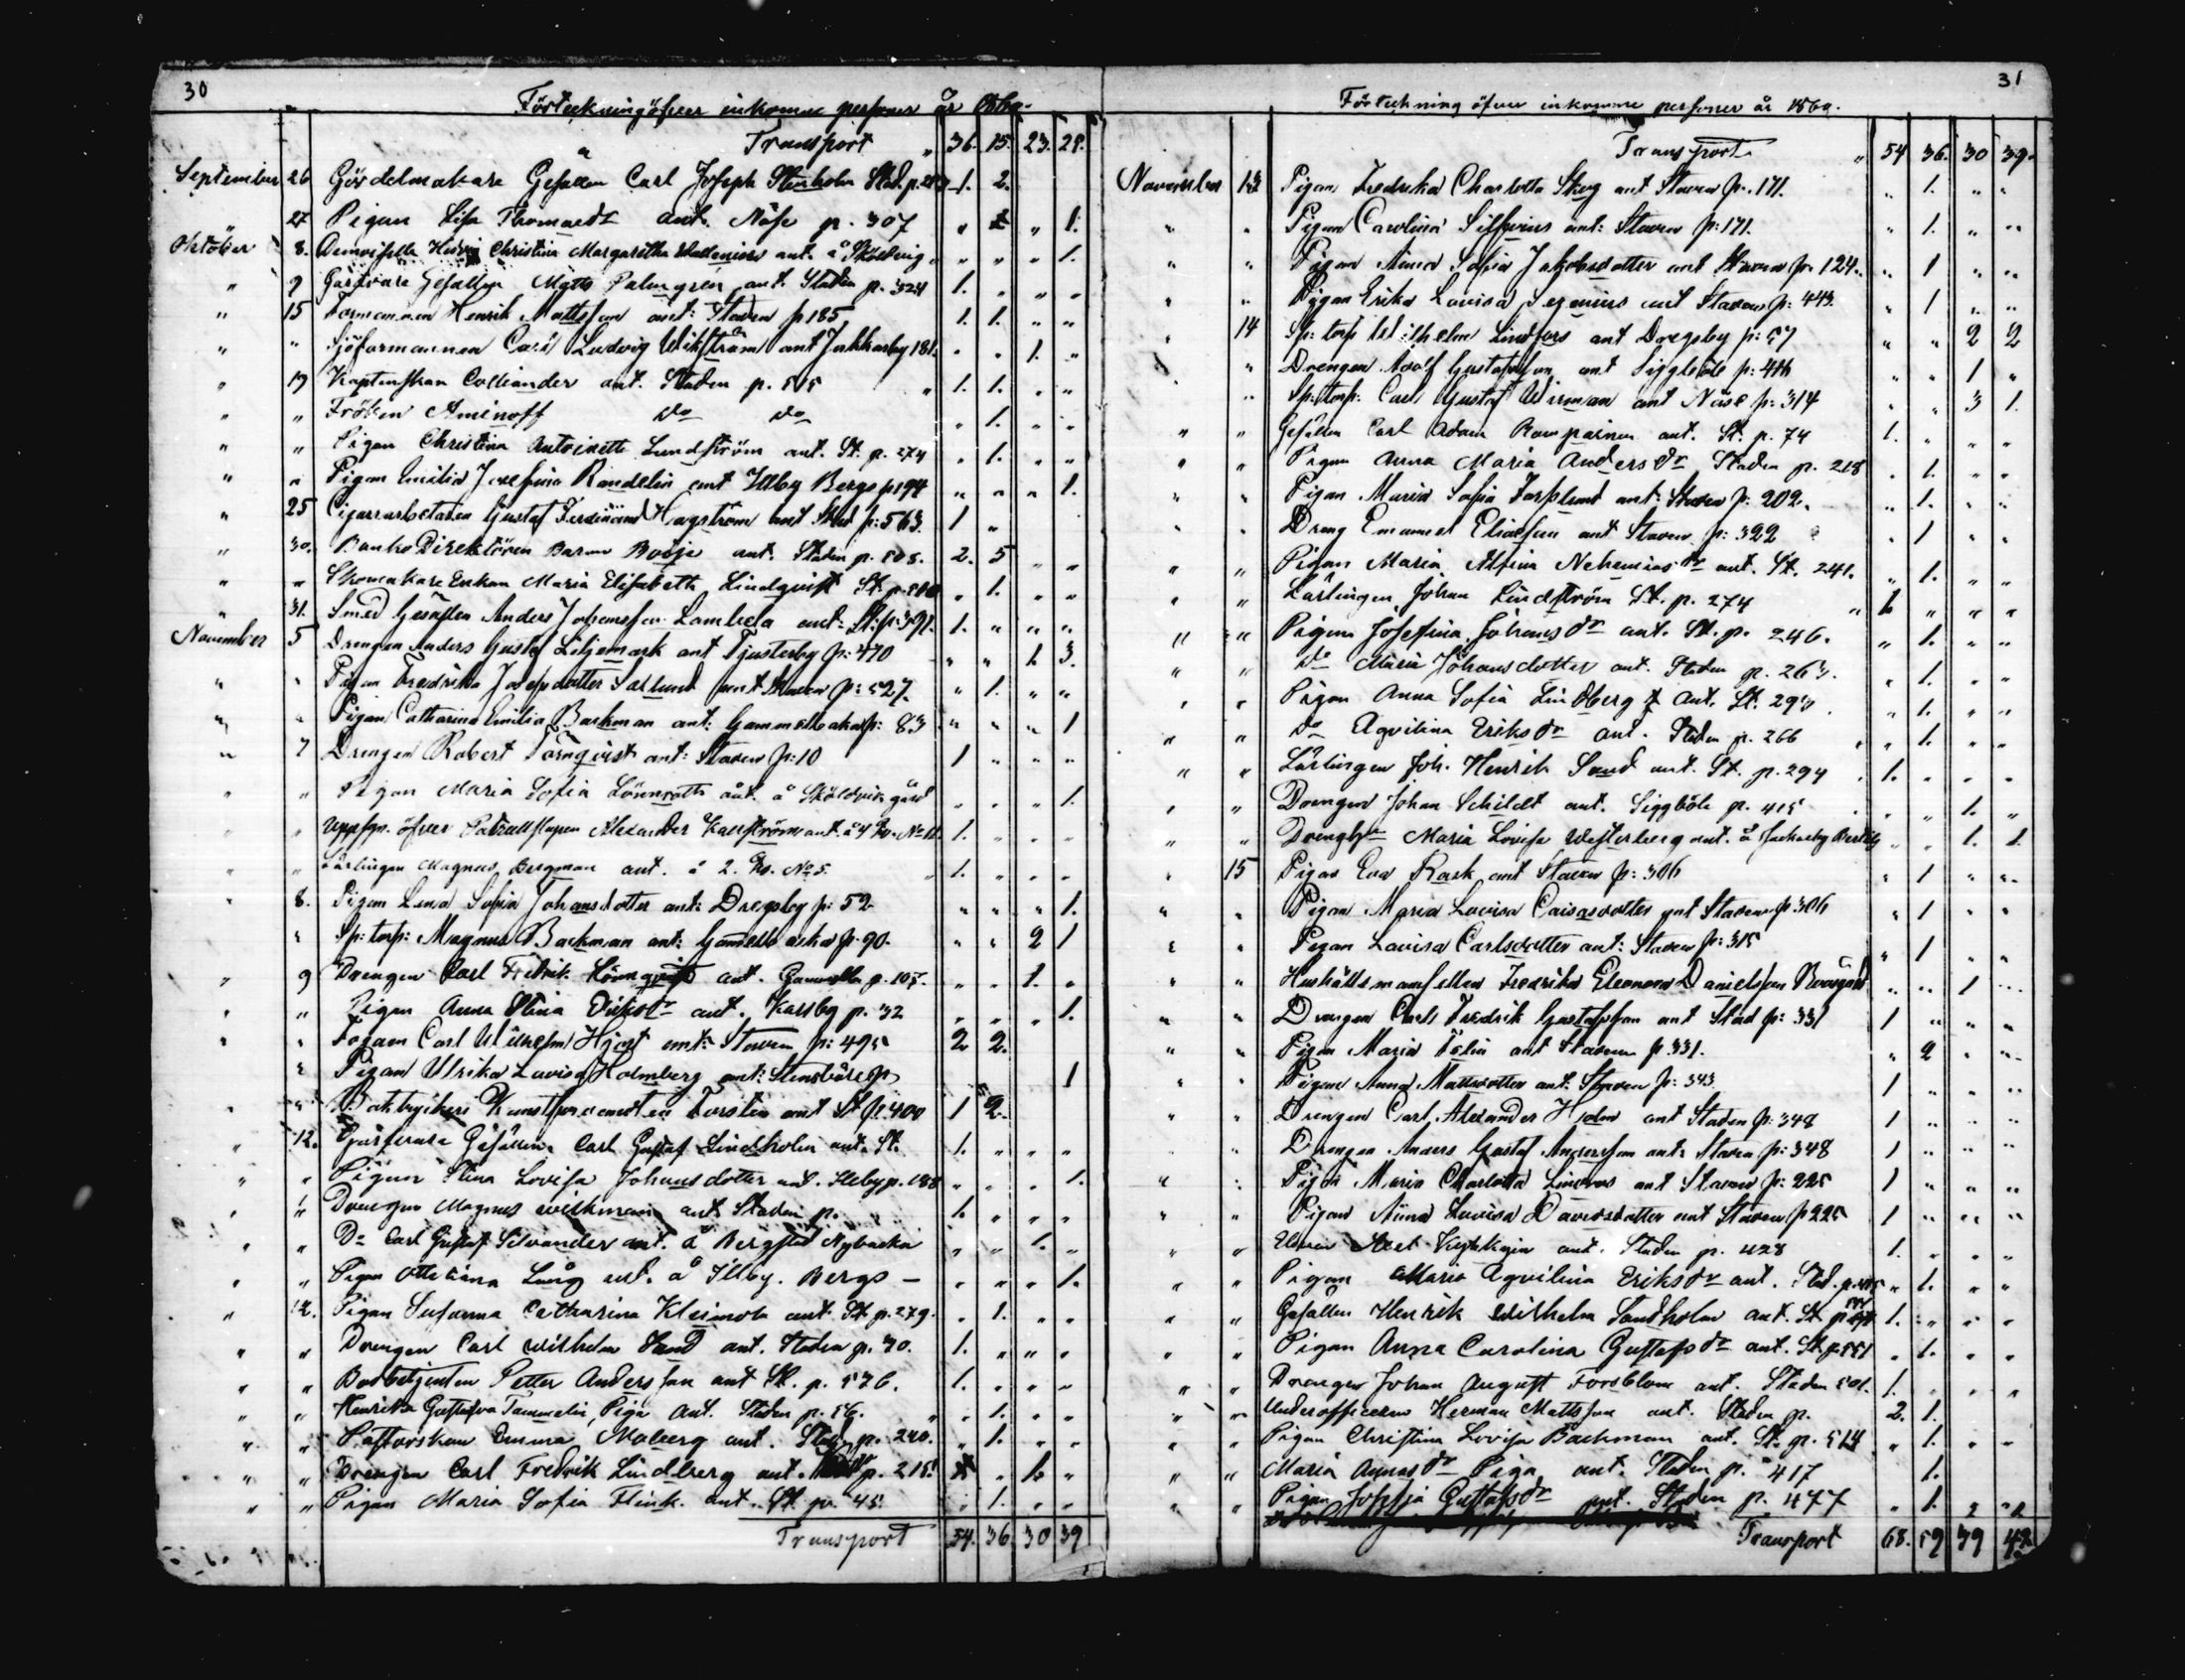 30
Förteckning öfver inkomne personer år 1860.
Transport " 36. 15. 23. 28.
September 26 Gördelmakare Gesällen Carl Joseph Stenholm Stad. 1. 2.
" 27 Pigan Lisa Thomasdr ant. Näse p. 307 " " 1.
Oktober 8. Demoiselle Christina Margaretha ant. å Sköldvig " " " 1.
" 9 Garfvare Gesällen Matts Palmgrén ant. Staden p. 324 1. " " "
" 15 Formannen Henrik Mattsson ant: Staden p 185 1. 1. " "
" " Sjöformannen Carl Ludvig Wikström ant Jakkarby 181. " " 1. "
" 19 Kaptenskan Colliander ant. Staden p. 515 " 1. 1. " "
" " Fröken Aminoff do do " 1. " "
" " Pigan Christina Antoinette Lundström ant. St. p. 274 " 1. " "
" " Pigan Emilia Josefina Randelin ant Illby Bergs p 194 " " " 1.
" 25 Cigarrarbetaren Gustaf Ferdinand Hagström ant Stad p: 563. 1 "
" 30. Banko Direktören Baron Boije ant. Staden p. 505. 2. 5 " "
" " Skomakare Enkan Maria Elisabeth Lindqvist St. p. " 1. " "
" 31. Smed Gesällen Anders Johansson Lambela ant: St: p 391. 1. " " "
November 5 Drengen Anders Gustaf Liljemark ant Tjusterby p: 470 " " 1. 3.
" " Pigan Fredrika Josepsdotter Sallund ant Staden p: 527. " 1. " "
" " Pigan Catharina Emilia Backman ant: Gammelbacka p: 83 " " " 1
" 7 Drengen Robert Törnqvist ant: Staden p: 10 1 " " "
" " Pigan Maria Sofia Lönnroth ant. å Sköldvik gård " " " 1.
" " Uppsyn. öfver Alexander Kallström ant. å 4 1. " " "
" " Lärlingen Magnus Bergman ant. å 2. No 5. " 1. " " "
" 8. Pigan Lena Sofia Johansdotter ant: Dregsby p: 52 " " " 1.
" " Sp: torp: Magnus Backman ant: Gammelbacka p. 90. " " 2 1
" 9 Drengen Carl Fredrik Lönnqvist ant. Gammelb. p. 105. " " 1. "
" " Pigan Anna Stina Eriksdr ant. Karsby p. 32 " " " 1.
" " Carl Wilhelm Hjort ant: Staden p: 495 2 2.
" Pigan Ulrika Lovisa Holmberg ant: Stensböle p 1
" " Torsten ant St p: 400 1 2.
" 12. Garfvare Gesällen Carl Gustaf Lindholm ant. St. 1. " " "
" " Pigan Stina Lovisa Johansdotter ant. Illby p. 188 " " " 1.
" " Drengen Magnus Wickman ant. Staden p. 1. " " "
" " Do Carl Gustaf Silvander ant. å Bergstad Nybacka " " 1. "
" " Pigan Ottiliana Ljung ant. å Illby. Bergs – " " " 1.
" 12. Pigan Susanna Catharina Kleimola ant. St. p. 279. " 1. " "
" " Drengen Carl Wilhelm Sand ant. Staden p. 30. 1. " " "
" " Bodbetjenten Petter Andersson ant St. p. 576. 1. " " "
" " Henrika Gustafva Tammelin, Piga ant. Staden p. 56. " " 1. " "
" " Pastorskan Emma Moberg ant. Staden p. 240. " 1. " "
" " Drengen Carl Fredrik Lindberg ant. p. 215. " 1. "
" " Pigan Maria Sofia Flink ant. St. p. 45 " 1. " "
Transport 54. 36. 30 39
31
Förteckning öfver inkomne personer år 1860.
Transport " 54 36. 30 39.
November 13 Pigan Fredrika Charlotta Skog ant Staden p. 171. " 1. " "
" " Pigan Carolina Silfvenius ant: Staden p: 171. " 1. " "
" " Pigan Anna Sofia Jakobsdotter ant Staden p. 124. " 1 " "
" " Pigan Erika Lovisa Segenius ant Staden p: 443. " 1 " "
" 14 Sp: torp Wilhelm Lindfors ant Dregsby p: 57 " " 2 2
" Drengen Adolf Gustafsson ant Siggböle p: 414 " " 1 "
" Sp: torp: Carl Gustaf Wirman ant Näse p: 314 " " 3 1.
" " Gesällen Carl Adam Rompainen ant. St. p. 74 1. " " "
" " Pigan Anna Maria Andersdr Staden p. 218 " 1. " "
" " Pigan Maria Sofia Forslund ant: Staden p. 202. " 1. " "
" " Dreng Emanuel Eliasson ant Staden p: 322 " 1 " "
" " Pigan Maria Alfina Nehemiasdr ant. St. 241. " 1. " "
" " Lärlingen Johan Lindström St. p. 274 " 1. " " "
" " Pigan Josefina Johansdr ant. St. p. 246. " 1. " "
" " do Maria Johansdotter ant. Staden p. 263. " 1. " "
" " Pigan Anna Sofia Lindberg ant. St. 290 " 1. " "
" " do Aqvilina Eriksdr ant. Staden p. 266 " 1. " "
" " Lärlingen Joh. Henrik Sand ant. St. p. 294 1. " " "
" " Drengen Johan Schildt ant. Siggböle p. 415 " " 1. "
" " Maria Lovisa Westerberg ant. å Jackarby " " 1. 1.
" 15 Pigan Eva Rask ant Staden p: 306 " 1 " "
" " Pigan Maria Lovisa Caisasdotter ant Staden p 306 " 1 " "
" " Pigan Lovisa Carlsdotter ant: Staden p: 315 " 1 " "
" " Hushållsmamsellen Fredrika Eleonora Danielsson " " 1 "
" " Drengen Carl Fredrik Gustafsson ant Stad p: 331 1 " " "
" " Pigan Maria Felin ant Staden p 331. " 2 " "
" " Pigan Anna Mattsdotter ant. Staden p: 343. 1 " " "
" " Drengen Carl Alexander Holm ant Staden p: 348 1 " " "
" " Drengen Anders Gustaf Andersson ant: Staden p: 348 1 " " "
" " Pigan Maria Charlotta Lindroos ant Staden p: 225 1 " " "
" " Pigan Anna Lovisa Davidsdotter ant Staden p 225 1 " " "
" " Axel ant. Staden p. 428 1. " " "
" " Pigan Maria Aqvilina Eriksdr ant. Stad. " 1. " "
" " Gesällen Henrik Wilhelm Sandholm ant. St. 1. " " "
" " Pigan Anna Carolina Gustafsdr ant. St. p. 551 " 1. " "
" " Drengen Johan August Forsblom ant. Staden 501. 1. " " "
" " Underofficeren Herman Mattsson ant. Staden p. 2. 1.
" " Pigan Christina Lovisa Backman ant. St. p. 514 " 1. " "
" " Maria Annasdr Piga ant. Staden p. 417 1.
" " Pigan Josefa Gustafsdr ant. Staden p. 477 " 1. " "
Transport 68. 59 39 42